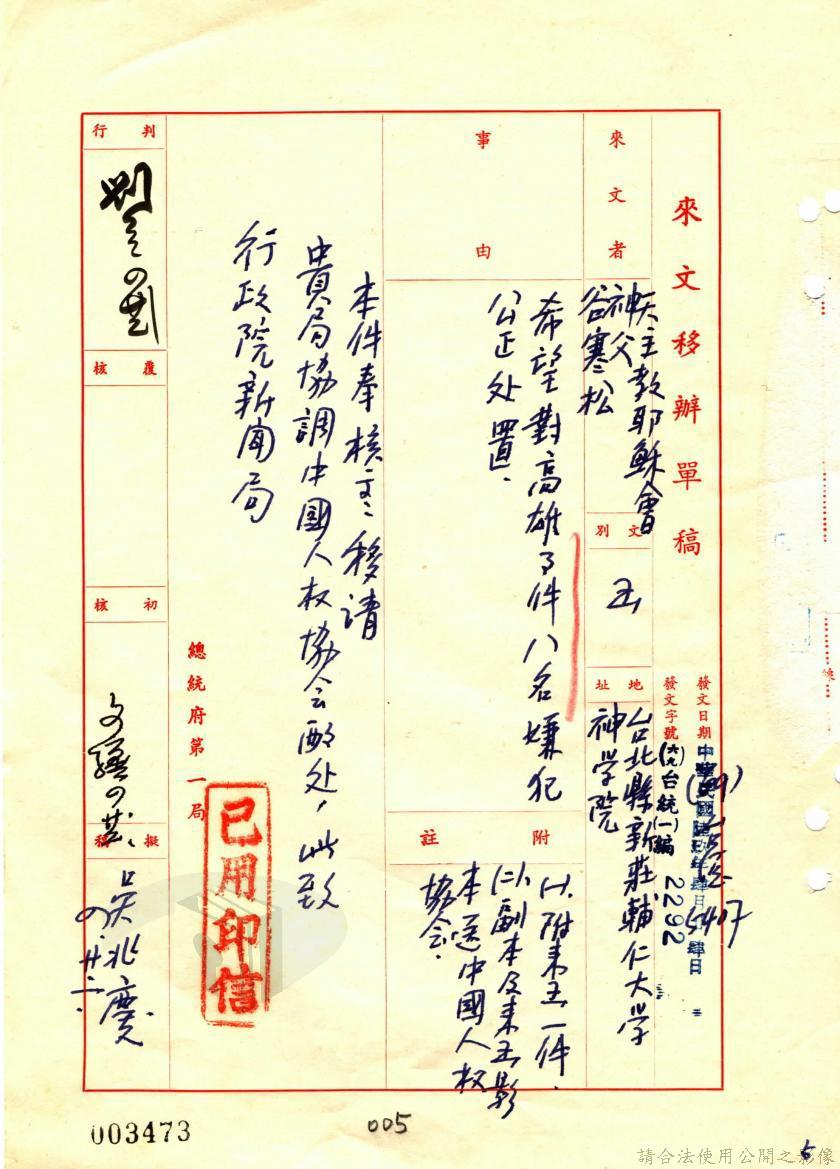 來文移辦單稿
發文日期
中華民國陸玖年肆月 肆日
發文字號
(六九)台統(一)編 2292
5407
來文者
天主教耶穌會
神父
谷寒松
文別
函
地址
台北縣新莊輔仁大学
神学院
事由
希望對高雄事件八名嫌犯
公正处置.
附註
(一)附来函一件.
(二)副本及来函影
本送中國人权
協会.
本件奉 核交、移請
貴局協調中國人权協会酌处，此致
行政院新闻局
總統府第一局
已用印信
判行
覆核
初核
擬稿
吴兆慶
四.廿二.
003473
005
5
請合法使用公開之影像